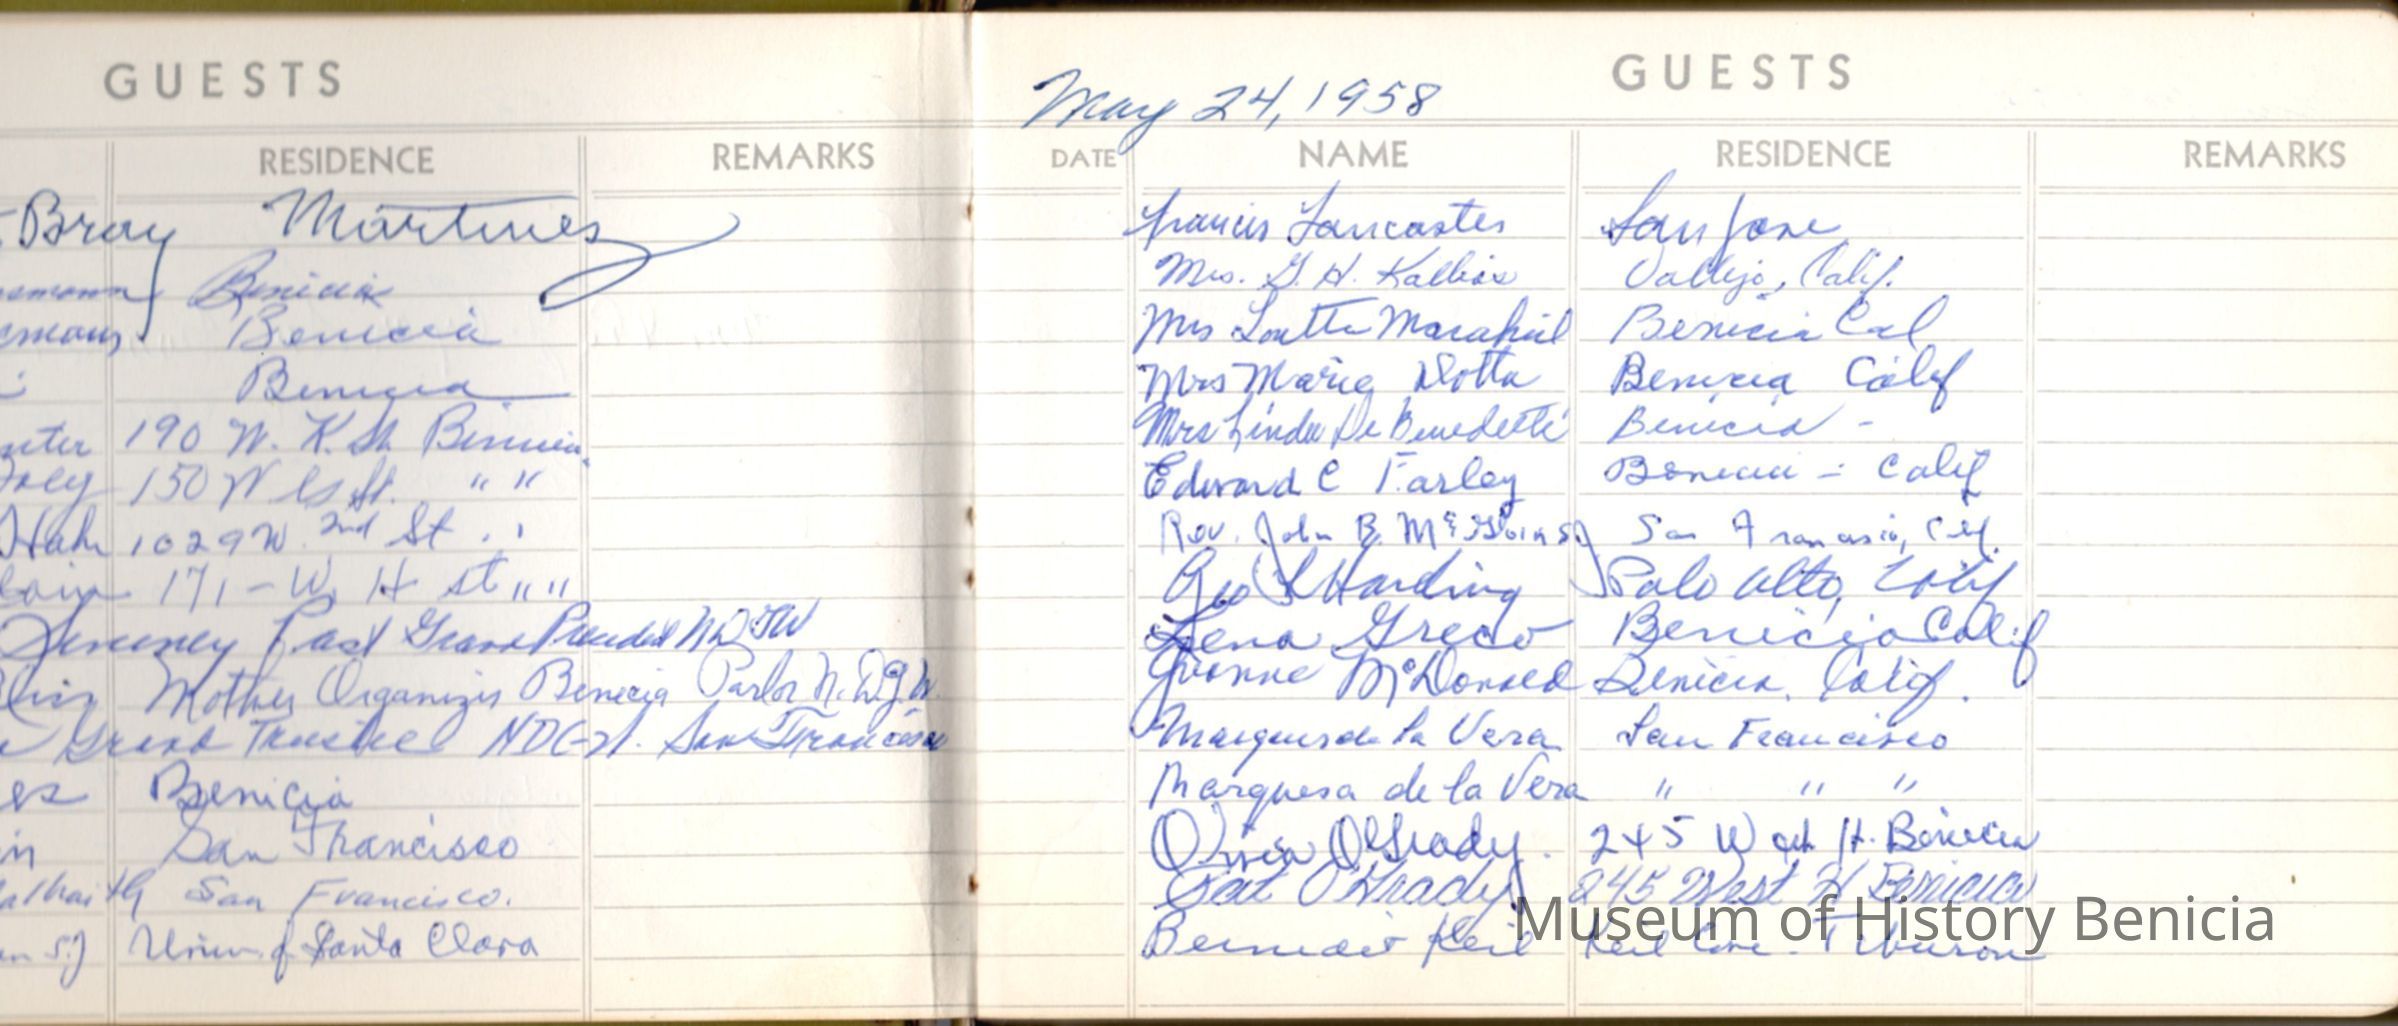 GUESTS
RESIDENCE REMARKS
Bray Martinez
Benicia
Benicia
Benicia
190 W. K. St. Benicia
150 W St. " "
Hah 1029 W. 2nd St
171 - W. H st " "
Sweeney Past Grand President N.D.G.W
Mother Organizer Benicia Parlor N.D.G.W.
Grand Trustee NDGW. San Francisco
Benicia
San Francisco
San Francisco.
S.J Univ. of Santa Clara
May 24, 1958
GUESTS
DATE NAME RESIDENCE REMARKS
Francis Lancaster San Jose
Mrs. G. H. Vallejo, Calif.
Mrs Benicia Cal
Mrs Marie Dotta Benicia Calif
Mrs Linda De Benedetti Benicia -
Edward C Farley Benicia - Calif
Rev. John B. McGloin SJ San Francisco, Calif.
Geo Harding Palo Alto, Calif
Lena Greco Benicia Calif
Yvonne McDonald Benicia, Calif.
Marques de la Vera San Francisco
Marquesa de la Vera " " "
O'Grady. 245 West H. Benicia
Pat O'Grady 245 West H Benicia
Keil Keil Cove. Tiburon
Museum of History Benicia